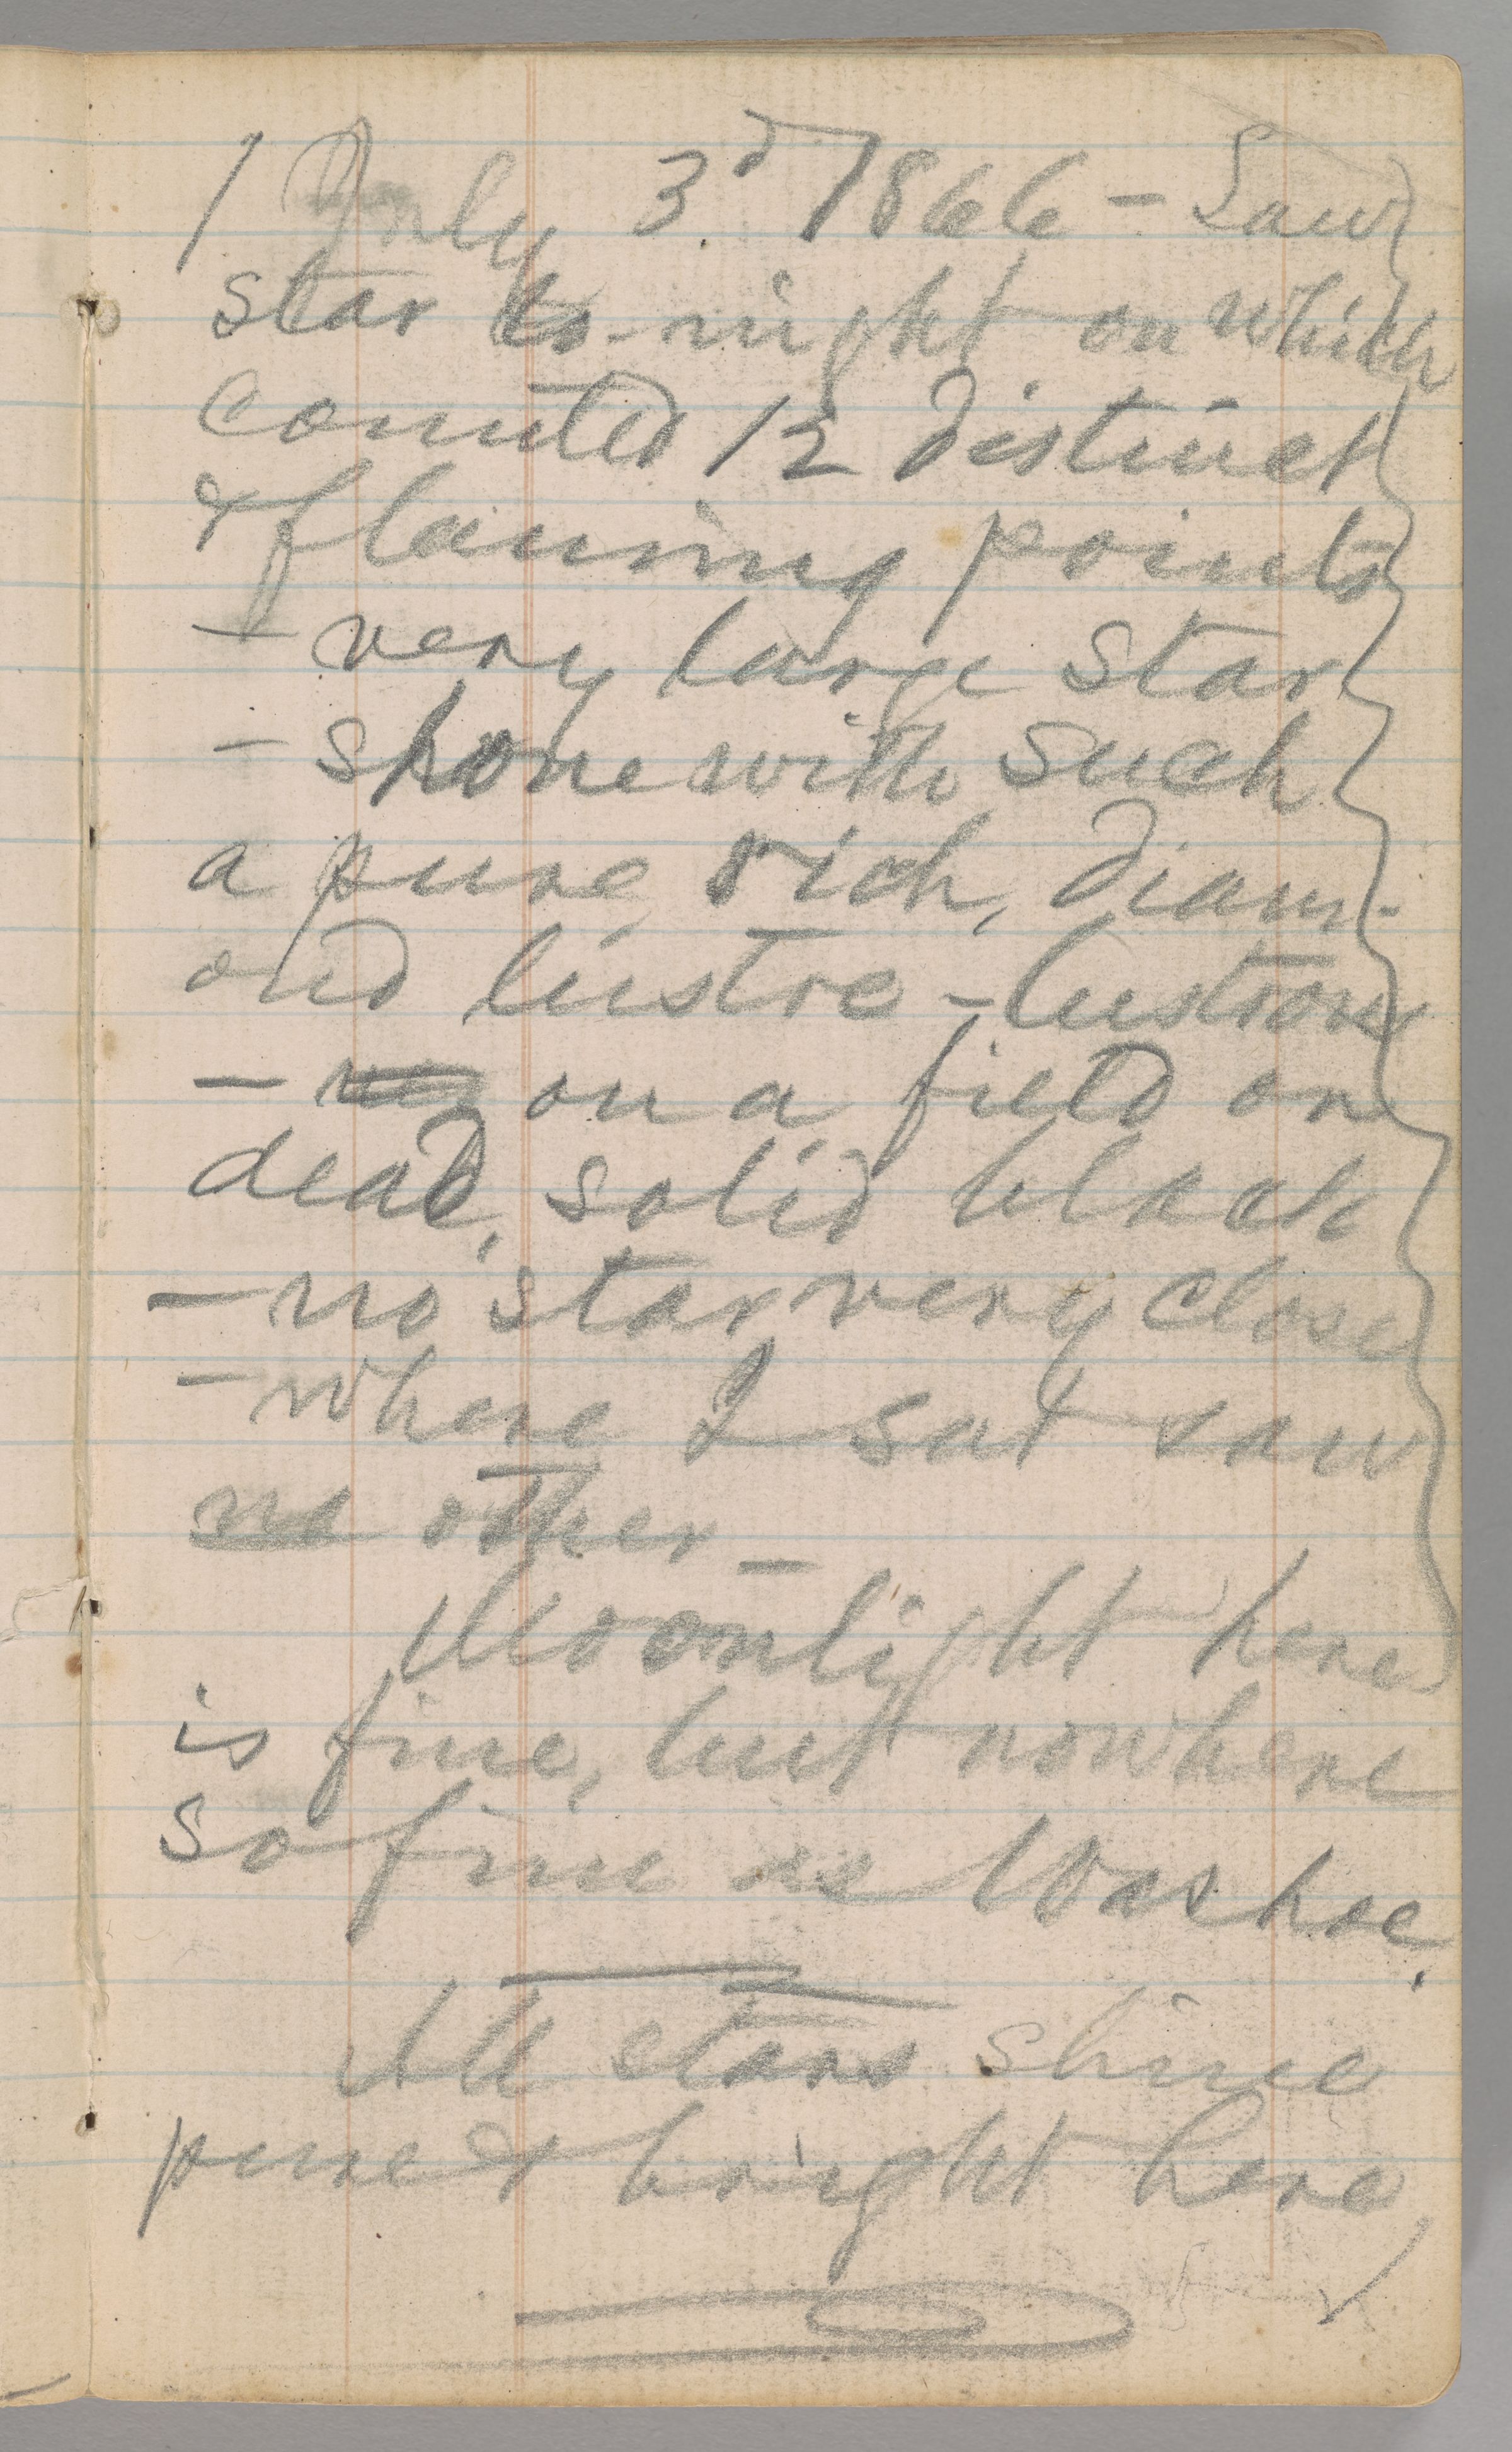 July 3d 1866 – Saw
star to-night on which
counted 12 distinct
& flaming points
– very large star
– shone with such
a pure, rich, diam-
ond lustre – lustrous
– on a field on
dead, solid black
– no star very close
– where I sat saw
no other –
Moonlight here
is fine, but nowhere
so fine as Washoe.
All stars shine
pure & bright here